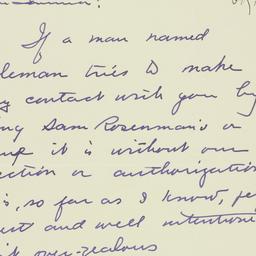 If a man named
leman tries to make
ny contact with you by
ing Sam Rosenman's or
it is without our
ection or authorization
s, so far as I know,
and well intentioni
over-zealous